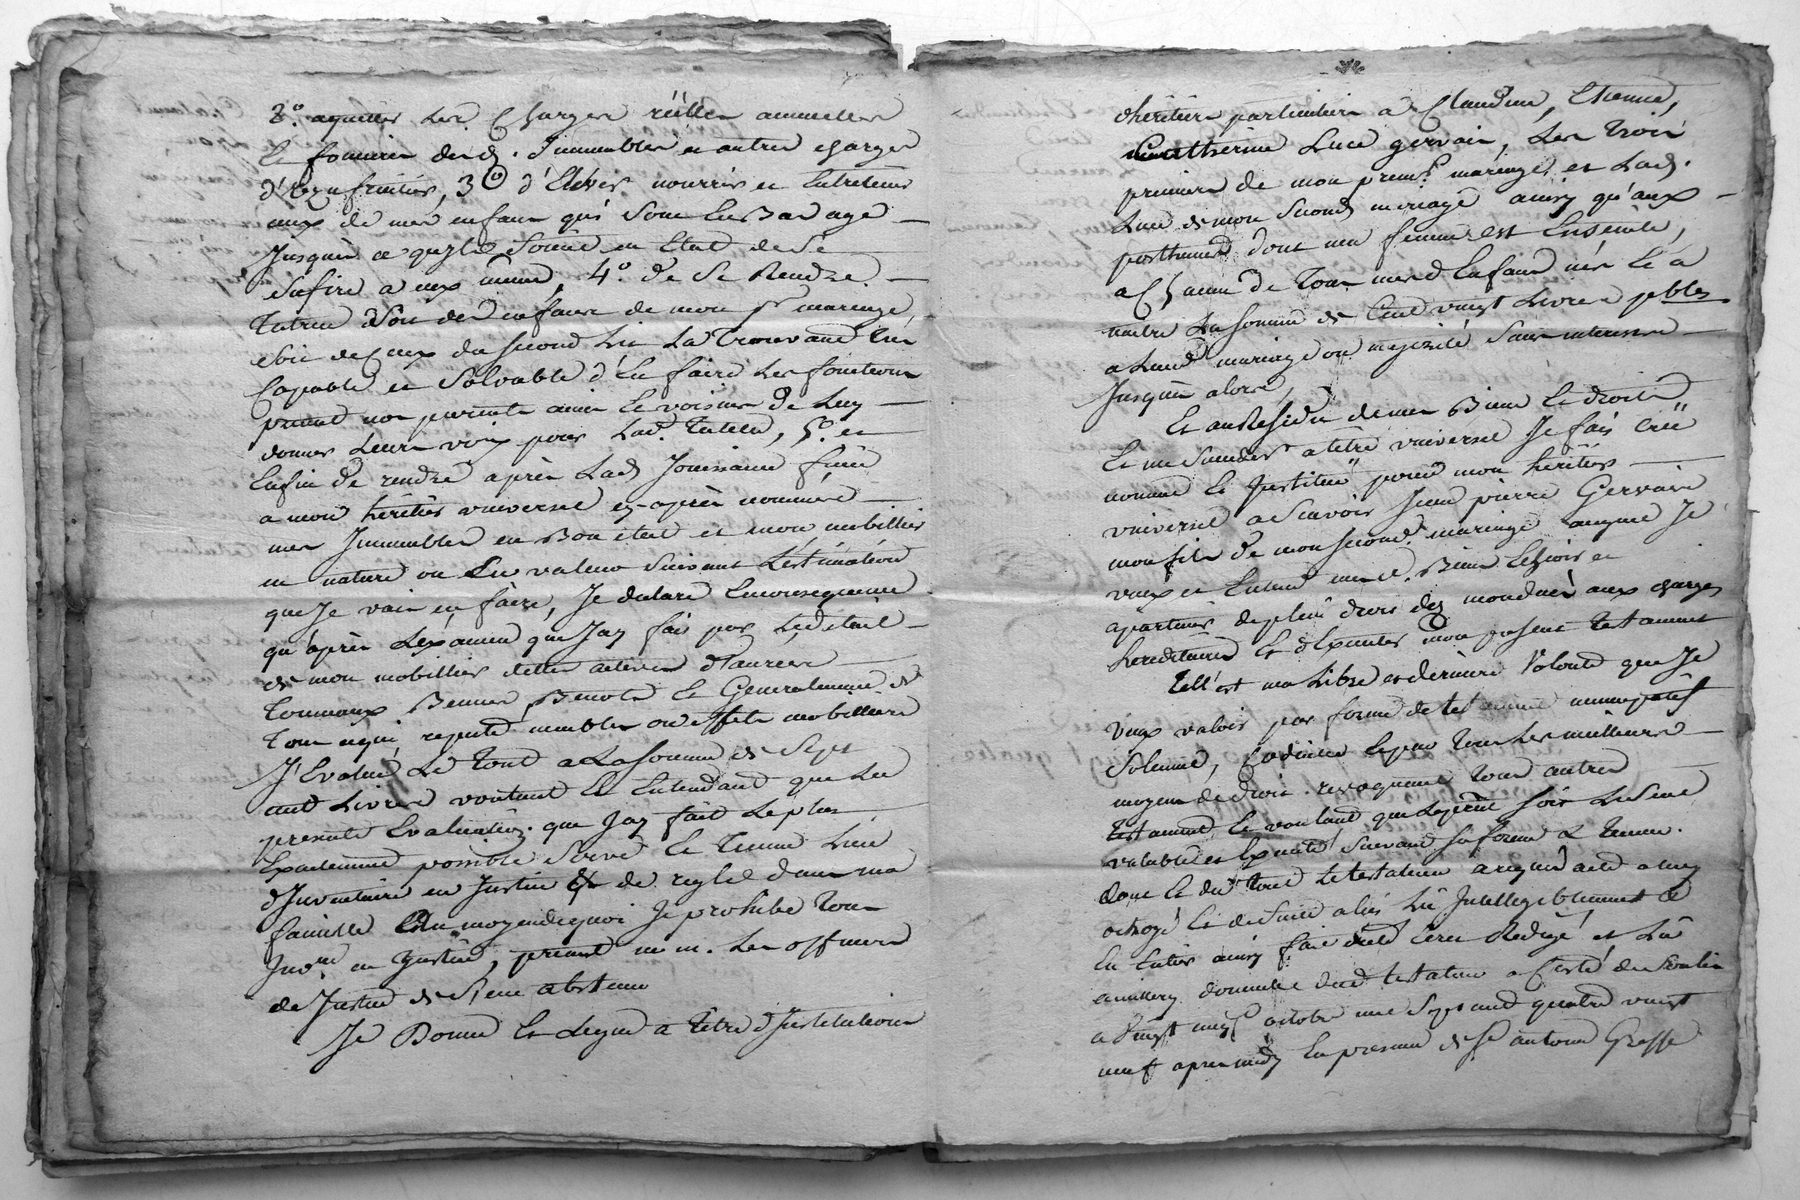 2.º aquitter les Charges réëlles annuelles
et foncieres desd. Immeubles et autres charges
d'uzufruitier, 3º d'Elever nourrir et Entretenir
ceux de mes enfans qui sont En Bas age
Jusqu'à ce qu'ils soient en Etat de se
sufire a eux meme, 4º de se Rendre
Tutrice soit des enfans de mon pr mariage,
soit de Ceux du second Lit La Trouvant tres
Capable et Solvable d'En faire Les fonctions
priant nos parents amis et voisins de Luy
donner Leurs voix pour Lad. Tutelle, 5º. et
Enfin de rendre après Lad Jouissance finie
a mon héritier universel cy-après nommé
mes Immeubles en Bon état et mon mobillier
en nature ou En valeur suivant L'estimation
que Je vais en faire, Je declare Enconsequence
qu'après L'éxamen que J'ay fait par Le détail
de mon mobillier dettes actives
Tonneaux Bennes Benots Et Generalement de
Tout ce qui repute meubles ou effets mobilliers
J'Evalue Le Tout a La somme de Sept
cent Livres voulant Et Entendant que La
presente Evaluation que J'ay fait Le plus
Exactement possible serve Et Tienne Lieu
d'Inventaire en Justice et de regle dans ma
famille Au moyen de quoi Je prohibe Tout
Invre en Justice, priant m.m. Les officiers
de Justice de s'en abstenir
Je Donne Et Legue a Titre d'Institution
d'héritiers particuliers a Claudine, Etienne,
Catherine Luce gervais, Les Trois
premiers de mon premr mariage, et Lad.
Luce de mon second mariage ainsy qu'aux
posthumes dont ma femme est Enceinte,
a Chacun de Tous mesd Enfans nés Et a
naitre La somme de Cent vingt Livres pbles
a Leurs mariage ou majorité sans interets
Jusqu'à alors,
Et au Résidu de mes Biens Et droits
Et me succeder a titre universel Je fais Créé
nomme Et Institue pour mon héritier
universel a Scavoir Jean pierre Gervais
mon fils de mon second mariage auquel Je
veux et Entend mesd. Biens Echoir et
apartenir de plein droit dès mon décès aux charges
hereditaires Et d'Executer mon present testament
Tell'est ma Libre et derniere Volonté que Je
Veux valoir par forme de testament nuncupatif
Solemne, Codicille Et par Tous Les meilleurs
moyens de droit revoquant Tous autres
testaments Et voulant que Le présent soit Le seul
valable et Executé suivant sa forme et Teneur.
dont Et du Tout Le testateur a requis acte a luy
octroyé Et de suite a lui Lû Intelligiblement Et
En Entier ainsy fait dicté Ecrit Rédigé et Lû
domicille dud testateur
a Vingt neuf octobre mil Sept cent quatre vingt
neuf apres midy En presence de Sr antoine Grosse